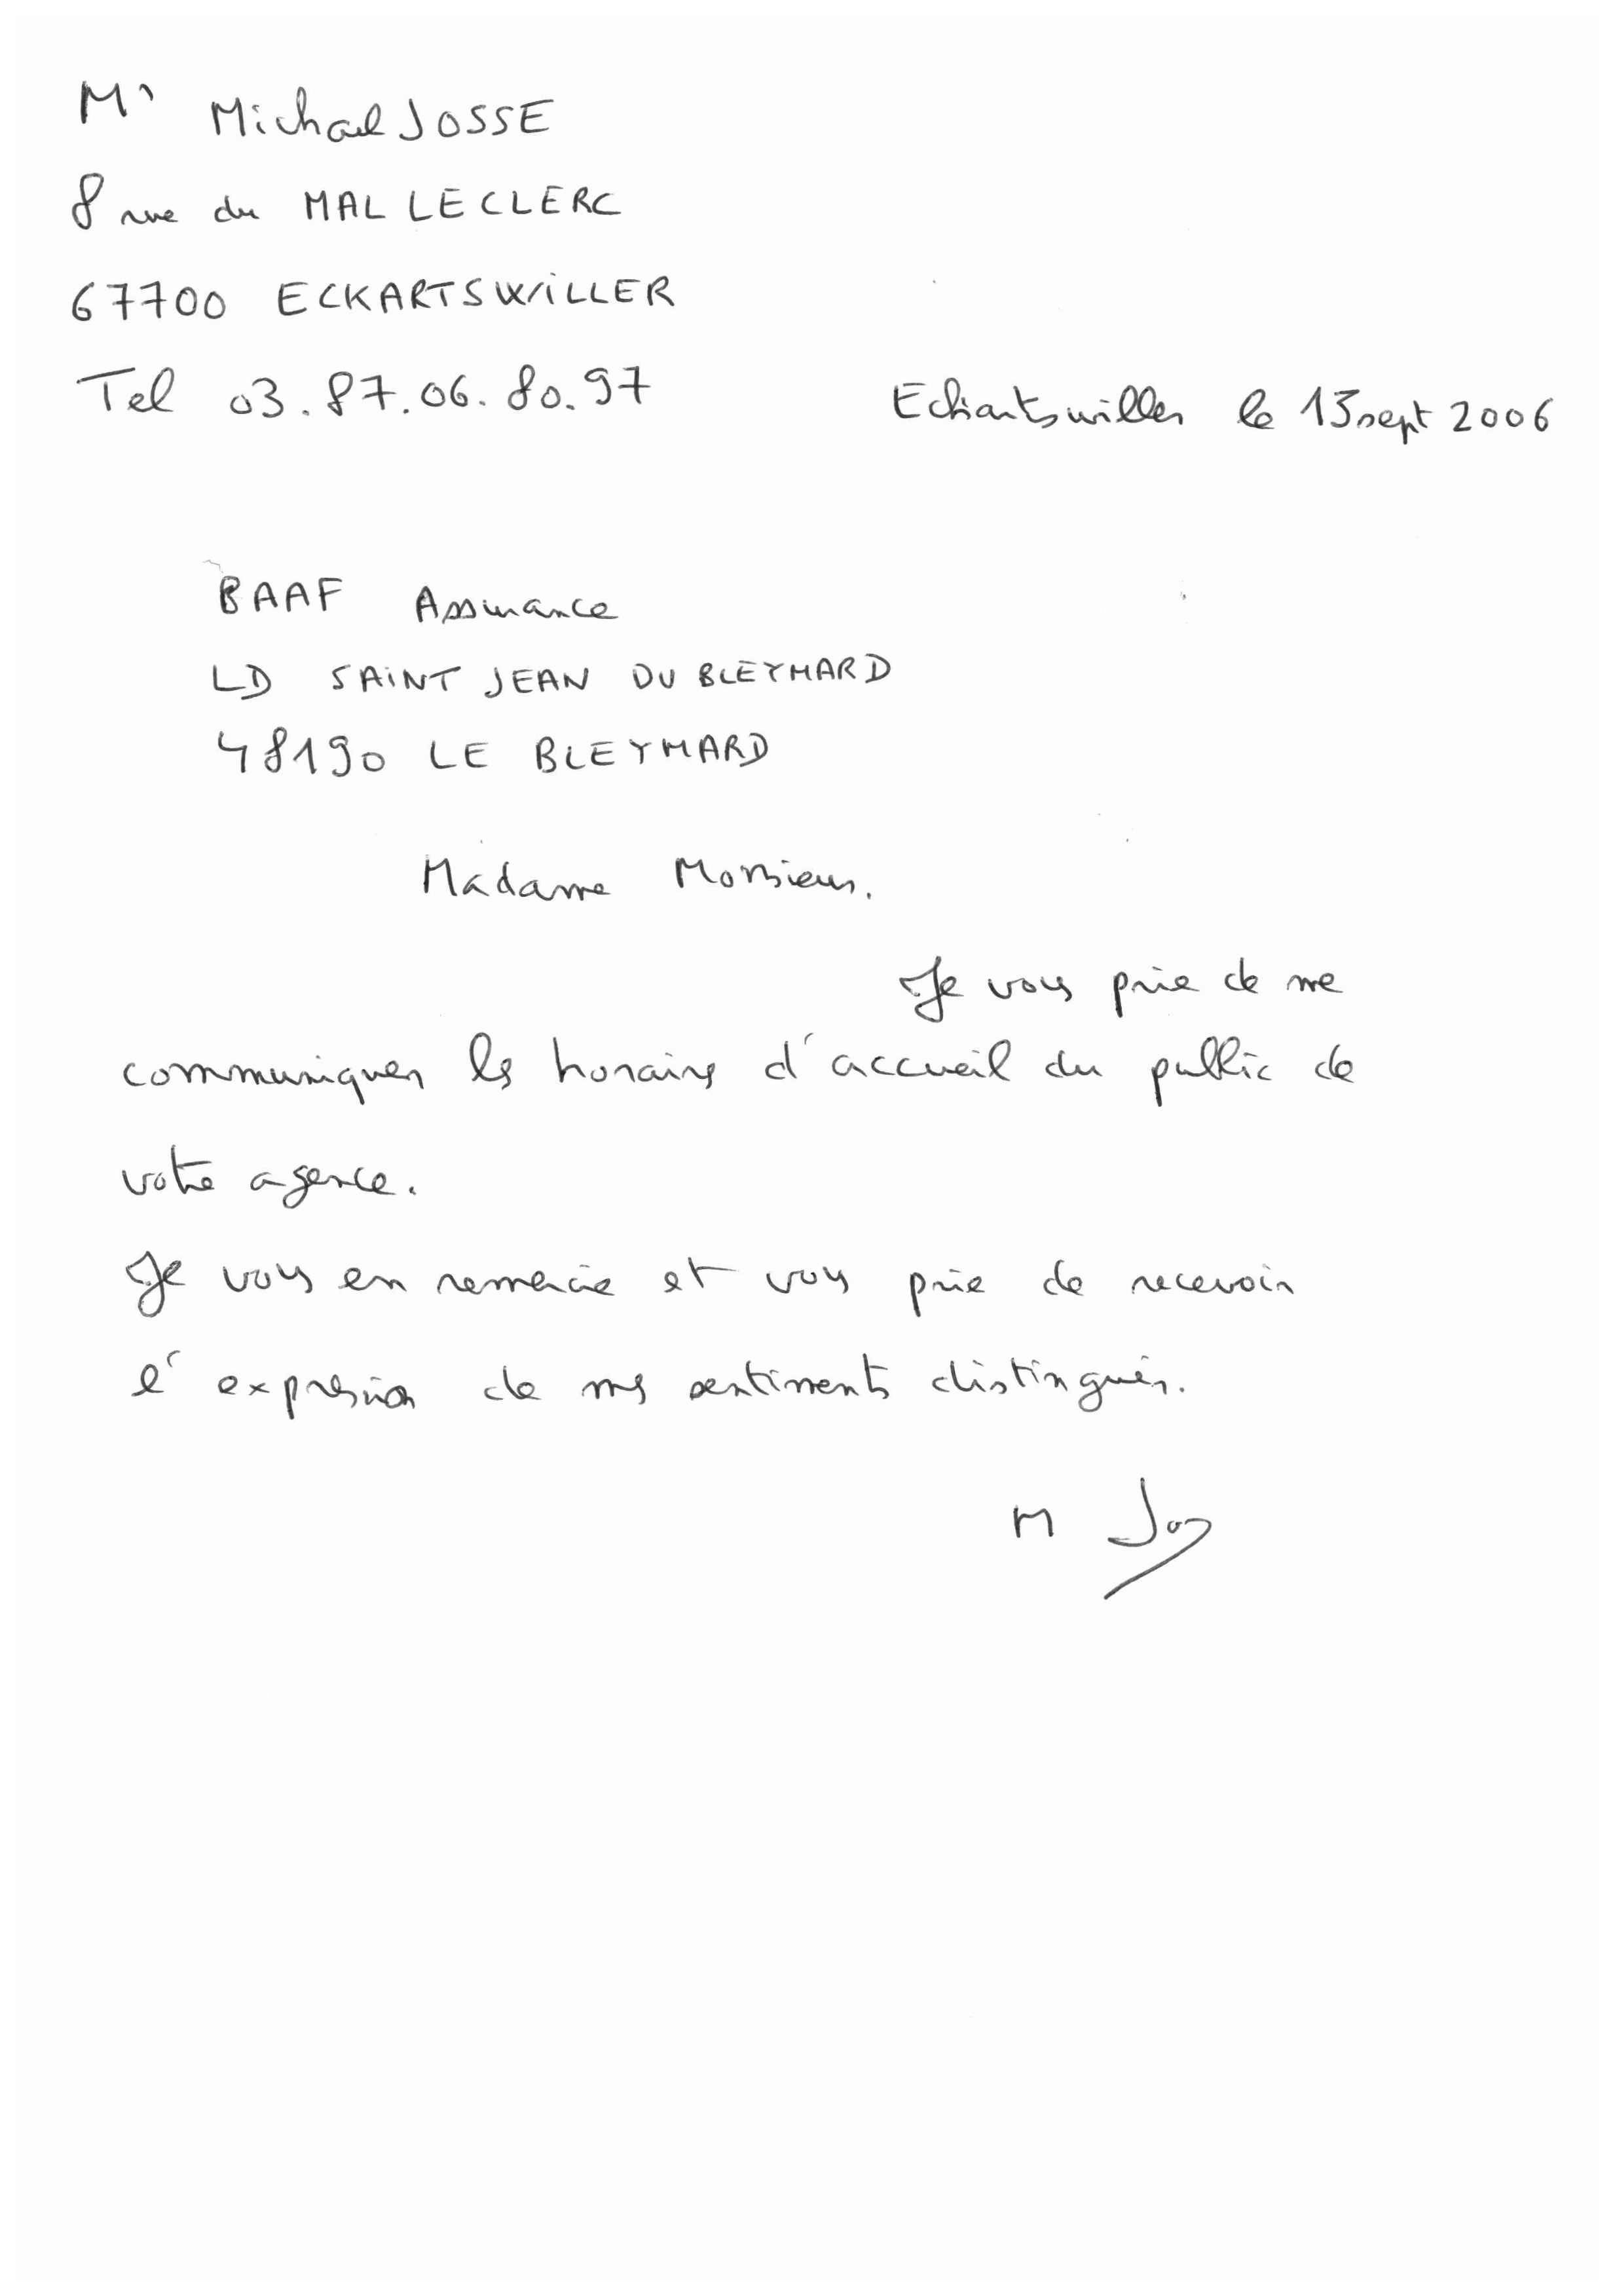 Mr Michael JOSSE
8 rue du MAL LECLERC
67700 ECKARTSWILLER
Tel 03.87.06.80.97
Eckartswiller le 13 sept 2006
BAAF Assurance
LD SAINT JEAN DU BLEYMARD
48190 LE BLEYMARD
Madame Monsieur.
Je vous prie de me
communiquer les horaires d'accueil du public de
votre agence.
Je vous en remercie et vous prie de recevoir
l'expression de mes sentiments distingués.
M Jos